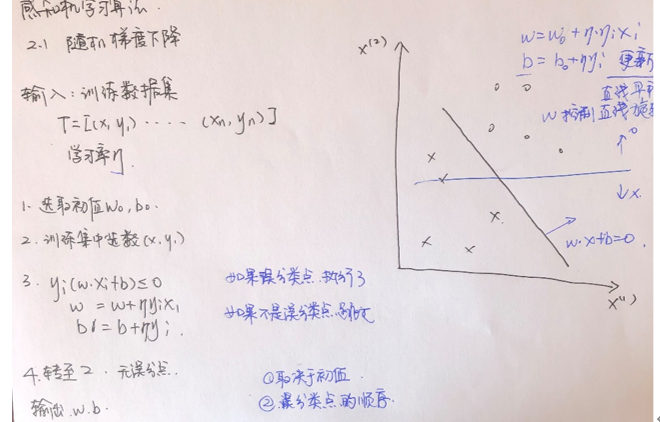 感知机学习算法.
2.1 随机梯度下降
输入:训练数据集
T=[(x, y,) ····· (xn, yn)]
学习率η
1. 选取初值w0, b0.
2. 训练集中选数(x, y,)
3. yi(w·xi+b)≤0
w = w+ηyixi
b = b+ηyi
如果误分类点.执行3
如果不是误分类点.
4. 转至2. 无误分点.
输出.w.b.
①取决于初值
②误分类点的顺序.
x(2)
w=w0+η·yixi
b=b0+ηyi 更新
w控制直线旋
↑o
↓x.
w·x+b=0.
x(1)